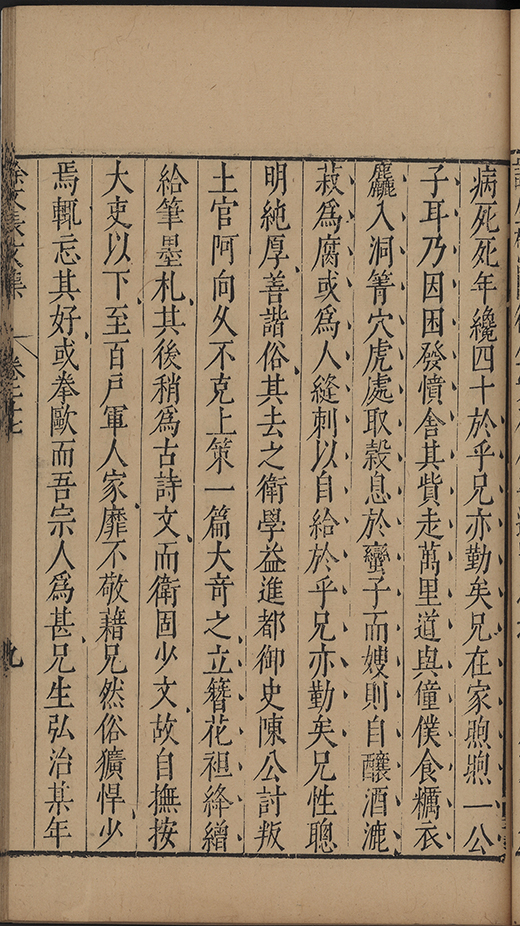 病死死年纔四十於乎兄亦勤矣兄在家煦煦一公
子耳乃因困發憤舍其貲走萬里道與僮僕食糲衣
麤入洞箐穴虎處取穀息於蠻子而嫂則自釀酒漉
菽爲腐或爲人縫刺以自給於乎兄亦勤矣兄性聰
明純厚善諧俗其去之衛學益進都御史陳公討叛
土官阿向久不克上策一篇大奇之立簪花袒絳繒
給筆墨札其後稍爲古詩文而衛固少文故自撫按
大吏以下至百戸軍人家靡不敬藉兄然俗獷悍少
焉輒忘其好或拳歐而吾宗人爲甚兄生弘治某年
徐文長文集
卷二十七
九